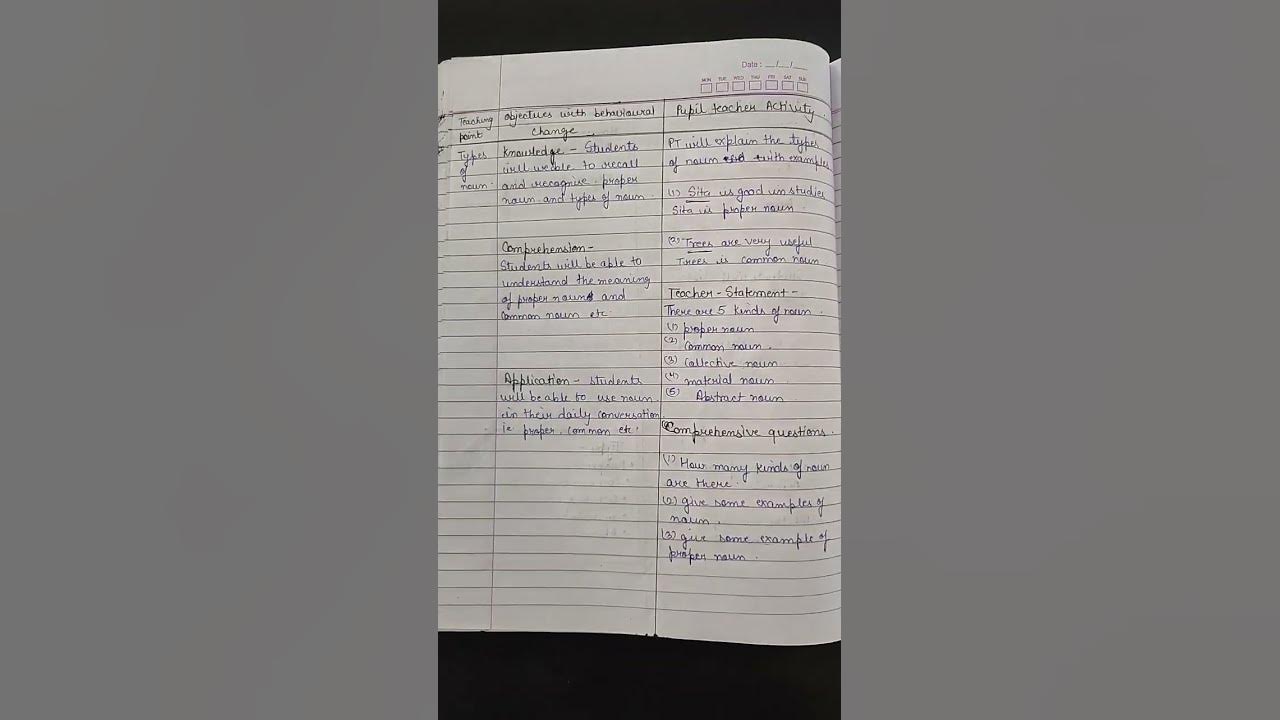 Date : __/__/__
MON TUE WED THU FRI SAT SUN
Teaching
point
objectives with behavioural
change
Pupil teacher Activity
Types
of
noun
Knowledge - Students
will be able to recall
and recognise proper
noun and types of noun
Comprehension -
Students will be able to
understand the meaning
of proper noun and
common noun etc
Application - students
will be able to use noun
in their daily conversation
ie proper, common etc
PT will explain the types
of noun with examples
(1) Sita is good in studies
Sita is proper noun
(2) Trees are very useful
Trees is common noun
Teacher - Statement -
There are 5 kinds of noun
(1) proper noun
(2) Common noun.
(3) Collective noun
(4) material noun
(5) Abstract noun
Comprehensive questions.
(1) How many kinds of noun
are there.
(2) give some examples of
noun.
(3) give some example of
proper noun.